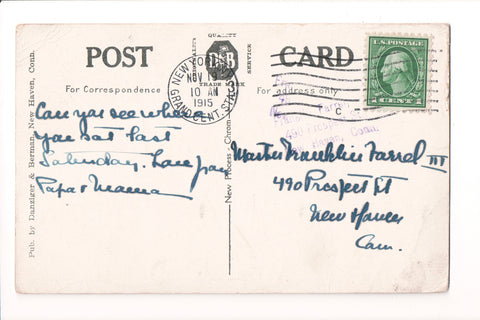 POST CARD
QUALITY
D&B
TRADE MARK
SERVICE
For Correspondence
For address only
NEW YORK
NOV 19
10 AM
1915
GRAND CENT. STA.
U.S. POSTAGE
1 CENT 1
C
Can you see where
you sat last
Saturday. Love from
Papa & Mama
Master Franklin Farrel III
490 Prospect St
New Haven
Conn.
Farrel
490 Prospect
Haven, Conn.
Pub. by Danziger & Berman, New Haven, Conn.
New Process